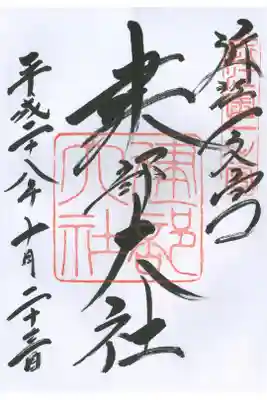 近江一之宮
建部大社
平成二十八年十月二十三日
建部大社